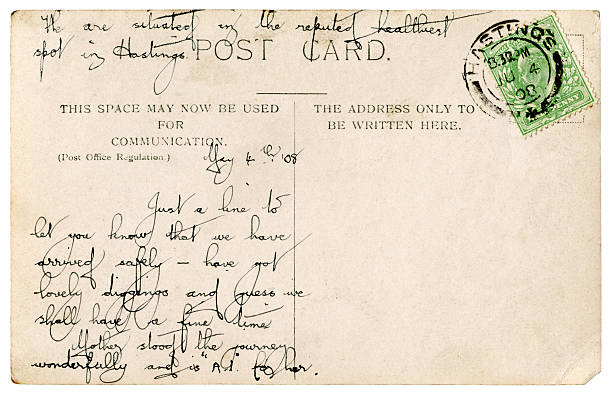 We are situated in the reputed healthiest
spot in Hastings.
POST CARD.
HASTINGS
8.30 PM
4
08
THIS SPACE MAY NOW BE USED
FOR
COMMUNICATION.
(Post Office Regulation.)
THE ADDRESS ONLY TO
BE WRITTEN HERE.
May 4th '08
Just a line to
let you know that we have
arrived safely – have got
lovely diggings and guess we
shall have a fine time
Mother stood the journey
wonderfully and is "A.1." for her.